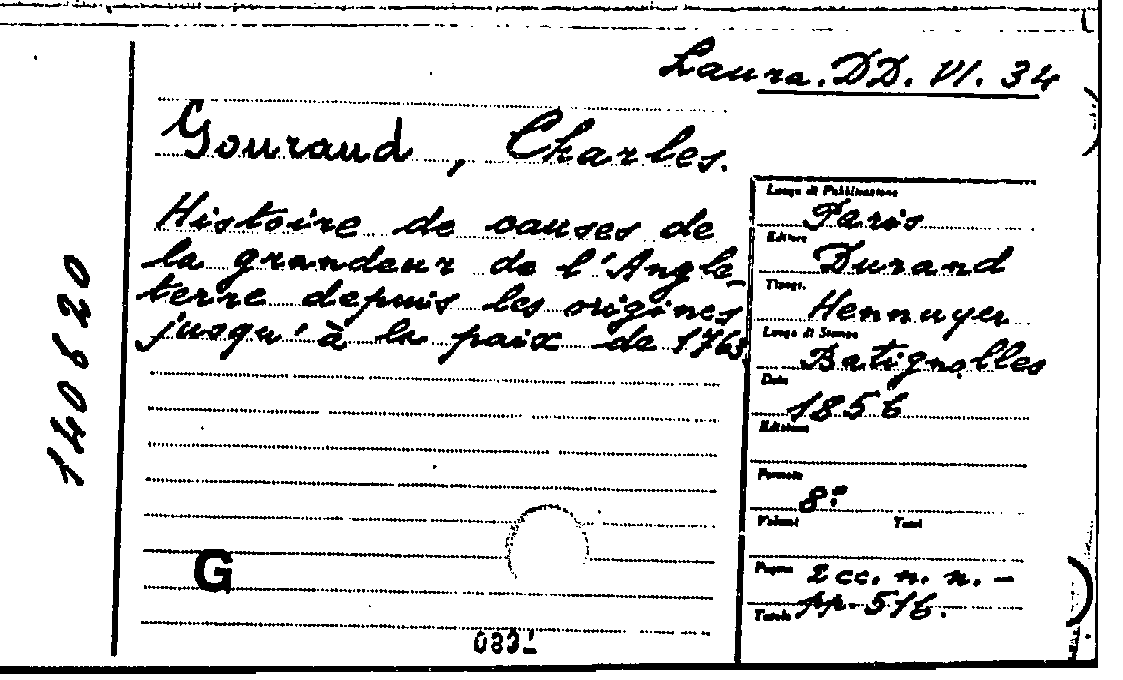 Laura. DD. VI. 34
Gouraud, Charles.
Histoire de causes de
la grandeur de l'Angle_
terre depuis les origines
jusqu'à la paix de 1763
140620
Luogo di Pubblicazione
Paris
Editore
Durand
Tipogr.
Hennuyer
Luogo di Stampa
Batignolles
Data
1856
Edizione
Formato
8º
Volumi Tomi
Pagine 2 cc. n. n. -
Tavole pp. 516.
G